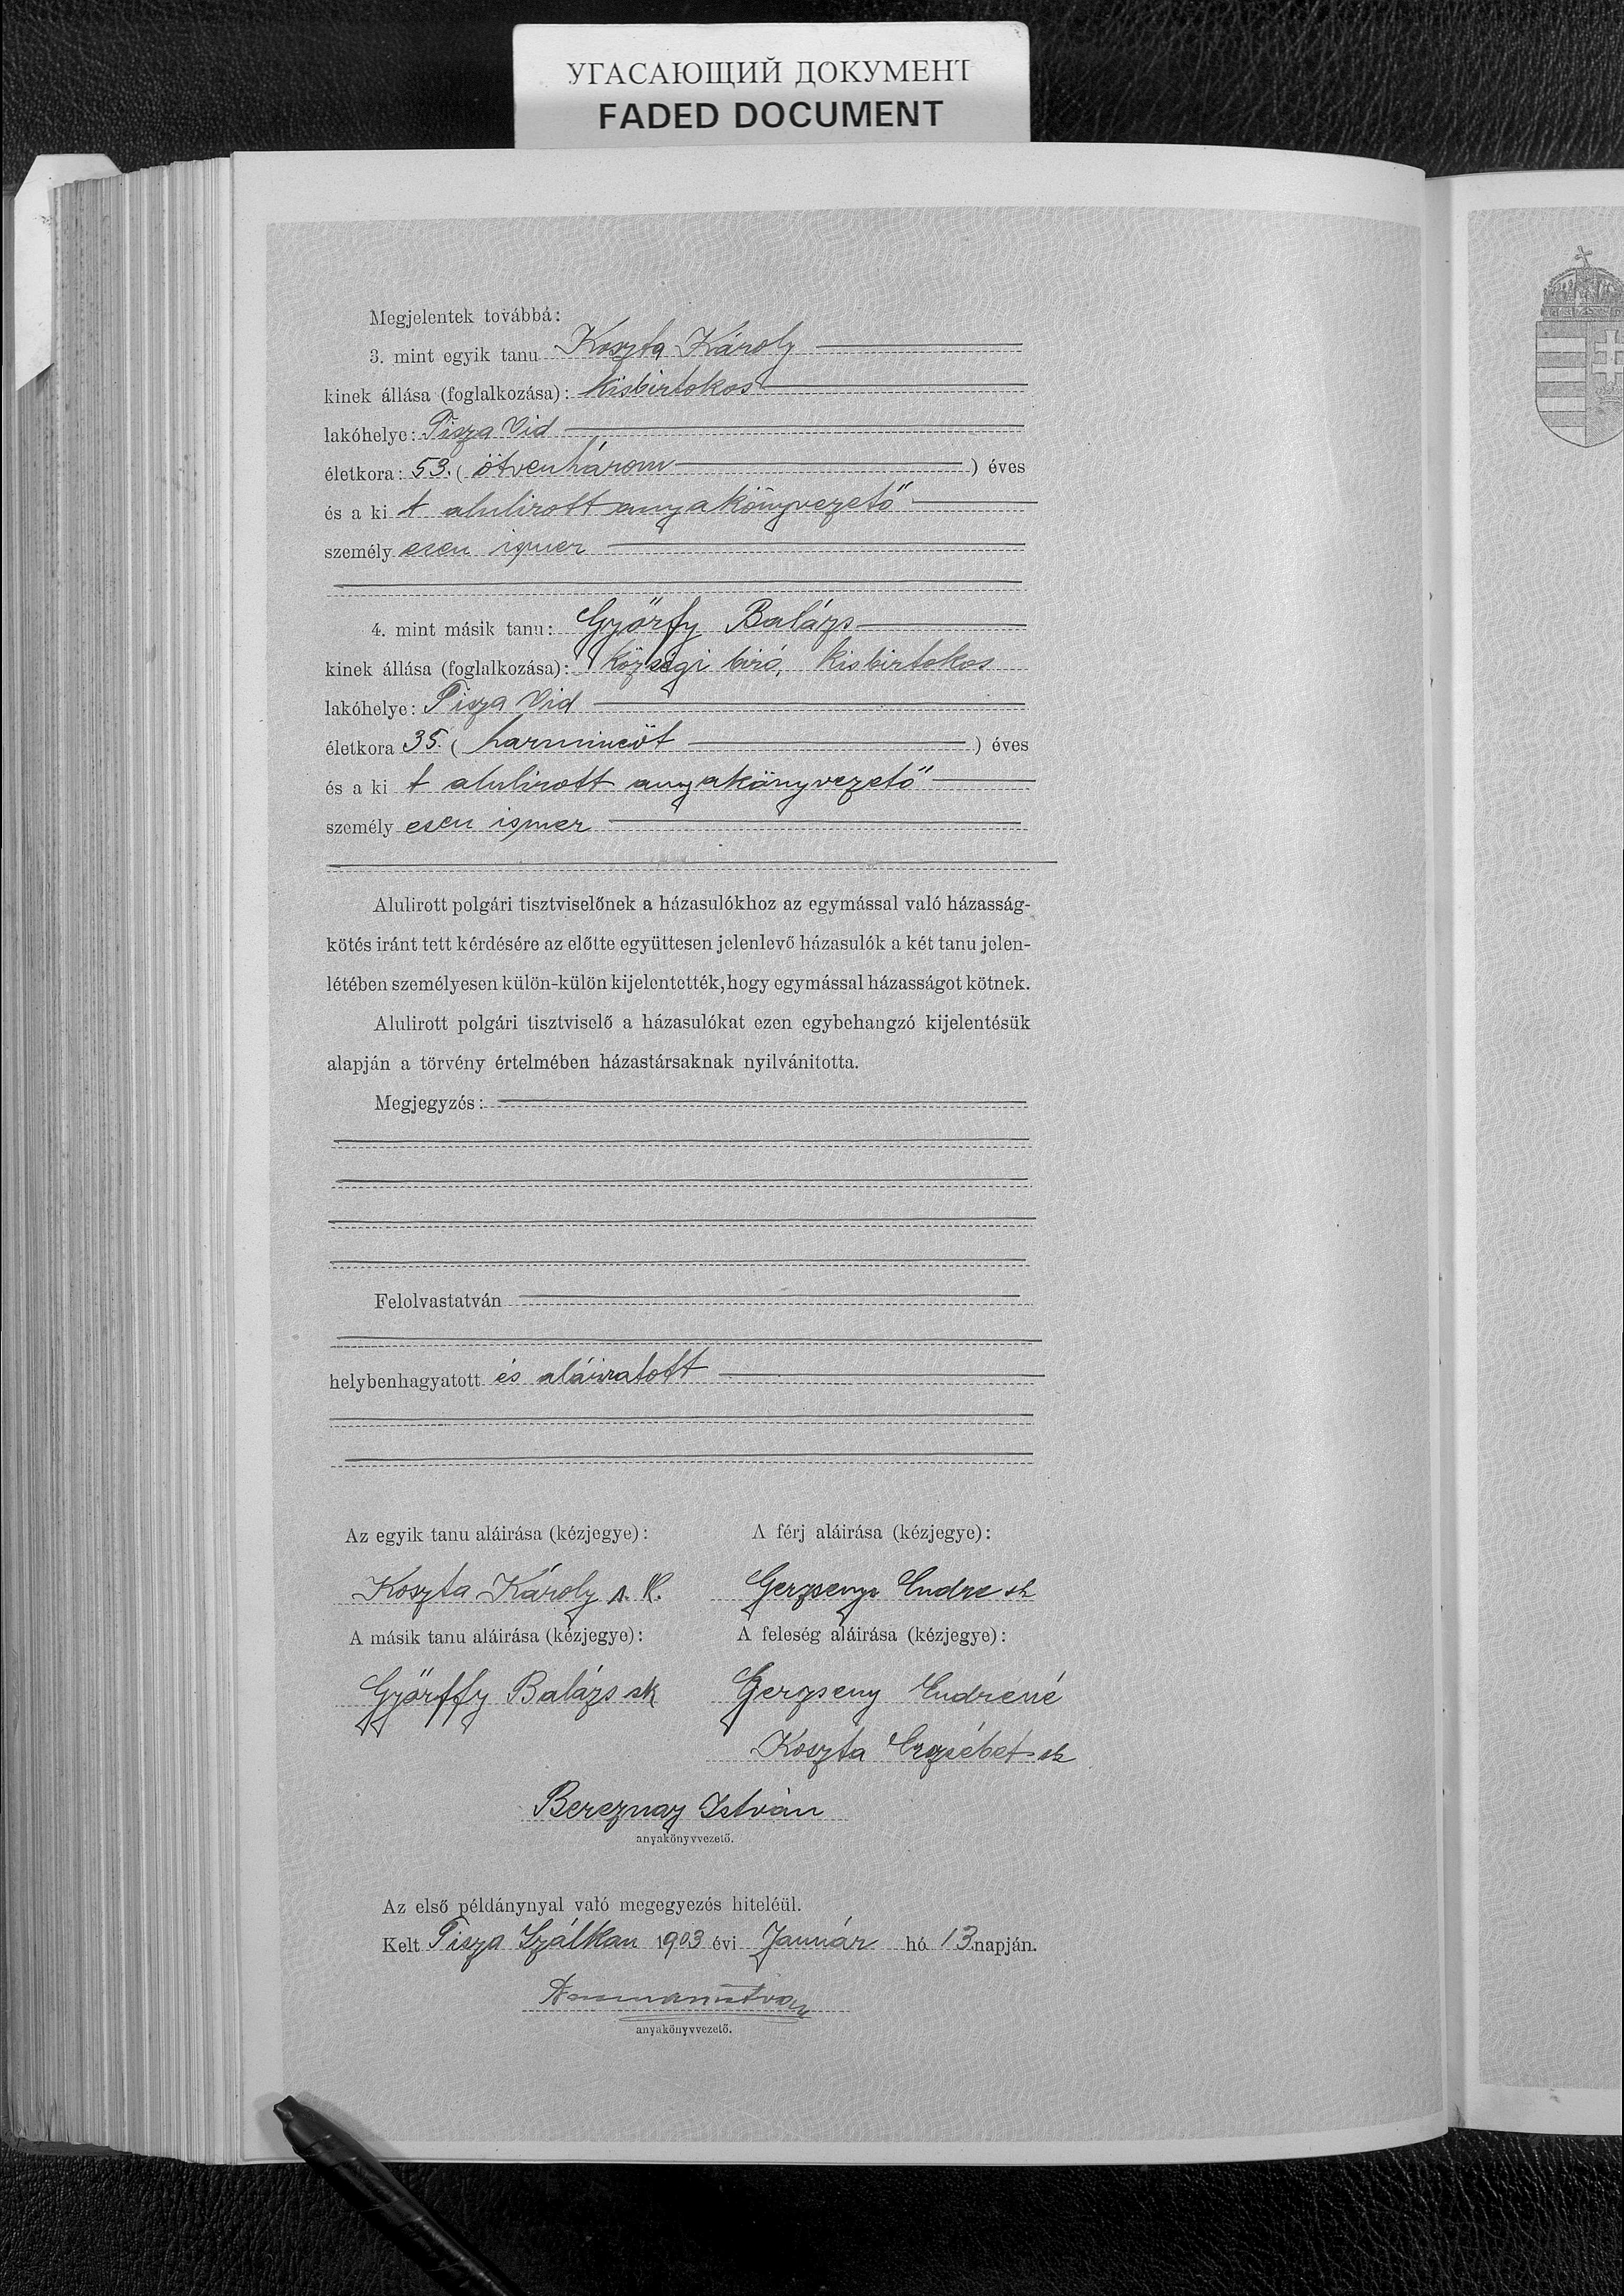 УГАСАЮЩИЙ ДОКУМЕНТ
FADED DOCUMENT
Megjelentek továbbá:
3. mint egyik tanu Koszta Károly
kinek állása (foglalkozása): kisbirtokos
lakóhelye: Tisza Vid
életkora: 53. ( ötvenhárom ) éves
és a ki t alulirott anyakönyvezető
személy esen ismer
4. mint másik tanu: Györfy Balázs
kinek állása (foglalkozása): községi biró, kisbirtokos
lakóhelye: Tisza Vid
életkora 35. ( harmincöt ) éves
és a ki t alulirott anyakönyvezető
személy esen ismer
Alulirott polgári tisztviselőnek a házasulókhoz az egymással való házasság-
kötés iránt tett kérdésére az előtte együttesen jelenlevő házasulók a két tanu jelen-
létében személyesen külön-külön kijelentették, hogy egymással házasságot kötnek.
Alulirott polgári tisztviselő a házasulókat ezen egybehangzó kijelentésük
alapján a törvény értelmében házastársaknak nyilvánitotta.
Megjegyzés:
Felolvastatván
helybenhagyatott és aláiratott
Az egyik tanu aláirása (kézjegye): A férj aláirása (kézjegye):
Koszta Károly s. k. Gerzsenyi Endre sk
A másik tanu aláirása (kézjegye): A feleség aláirása (kézjegye):
Györffy Balázs sk Gerzseny Endrené
Koszta Erzsébet sk
Bereznay István
anyakönyvvezető.
Az első példánynyal való megegyezés hiteléül.
Kelt Tisza Szálkan 1903 évi Január hó 13 napján.
anyakönyvvezető.